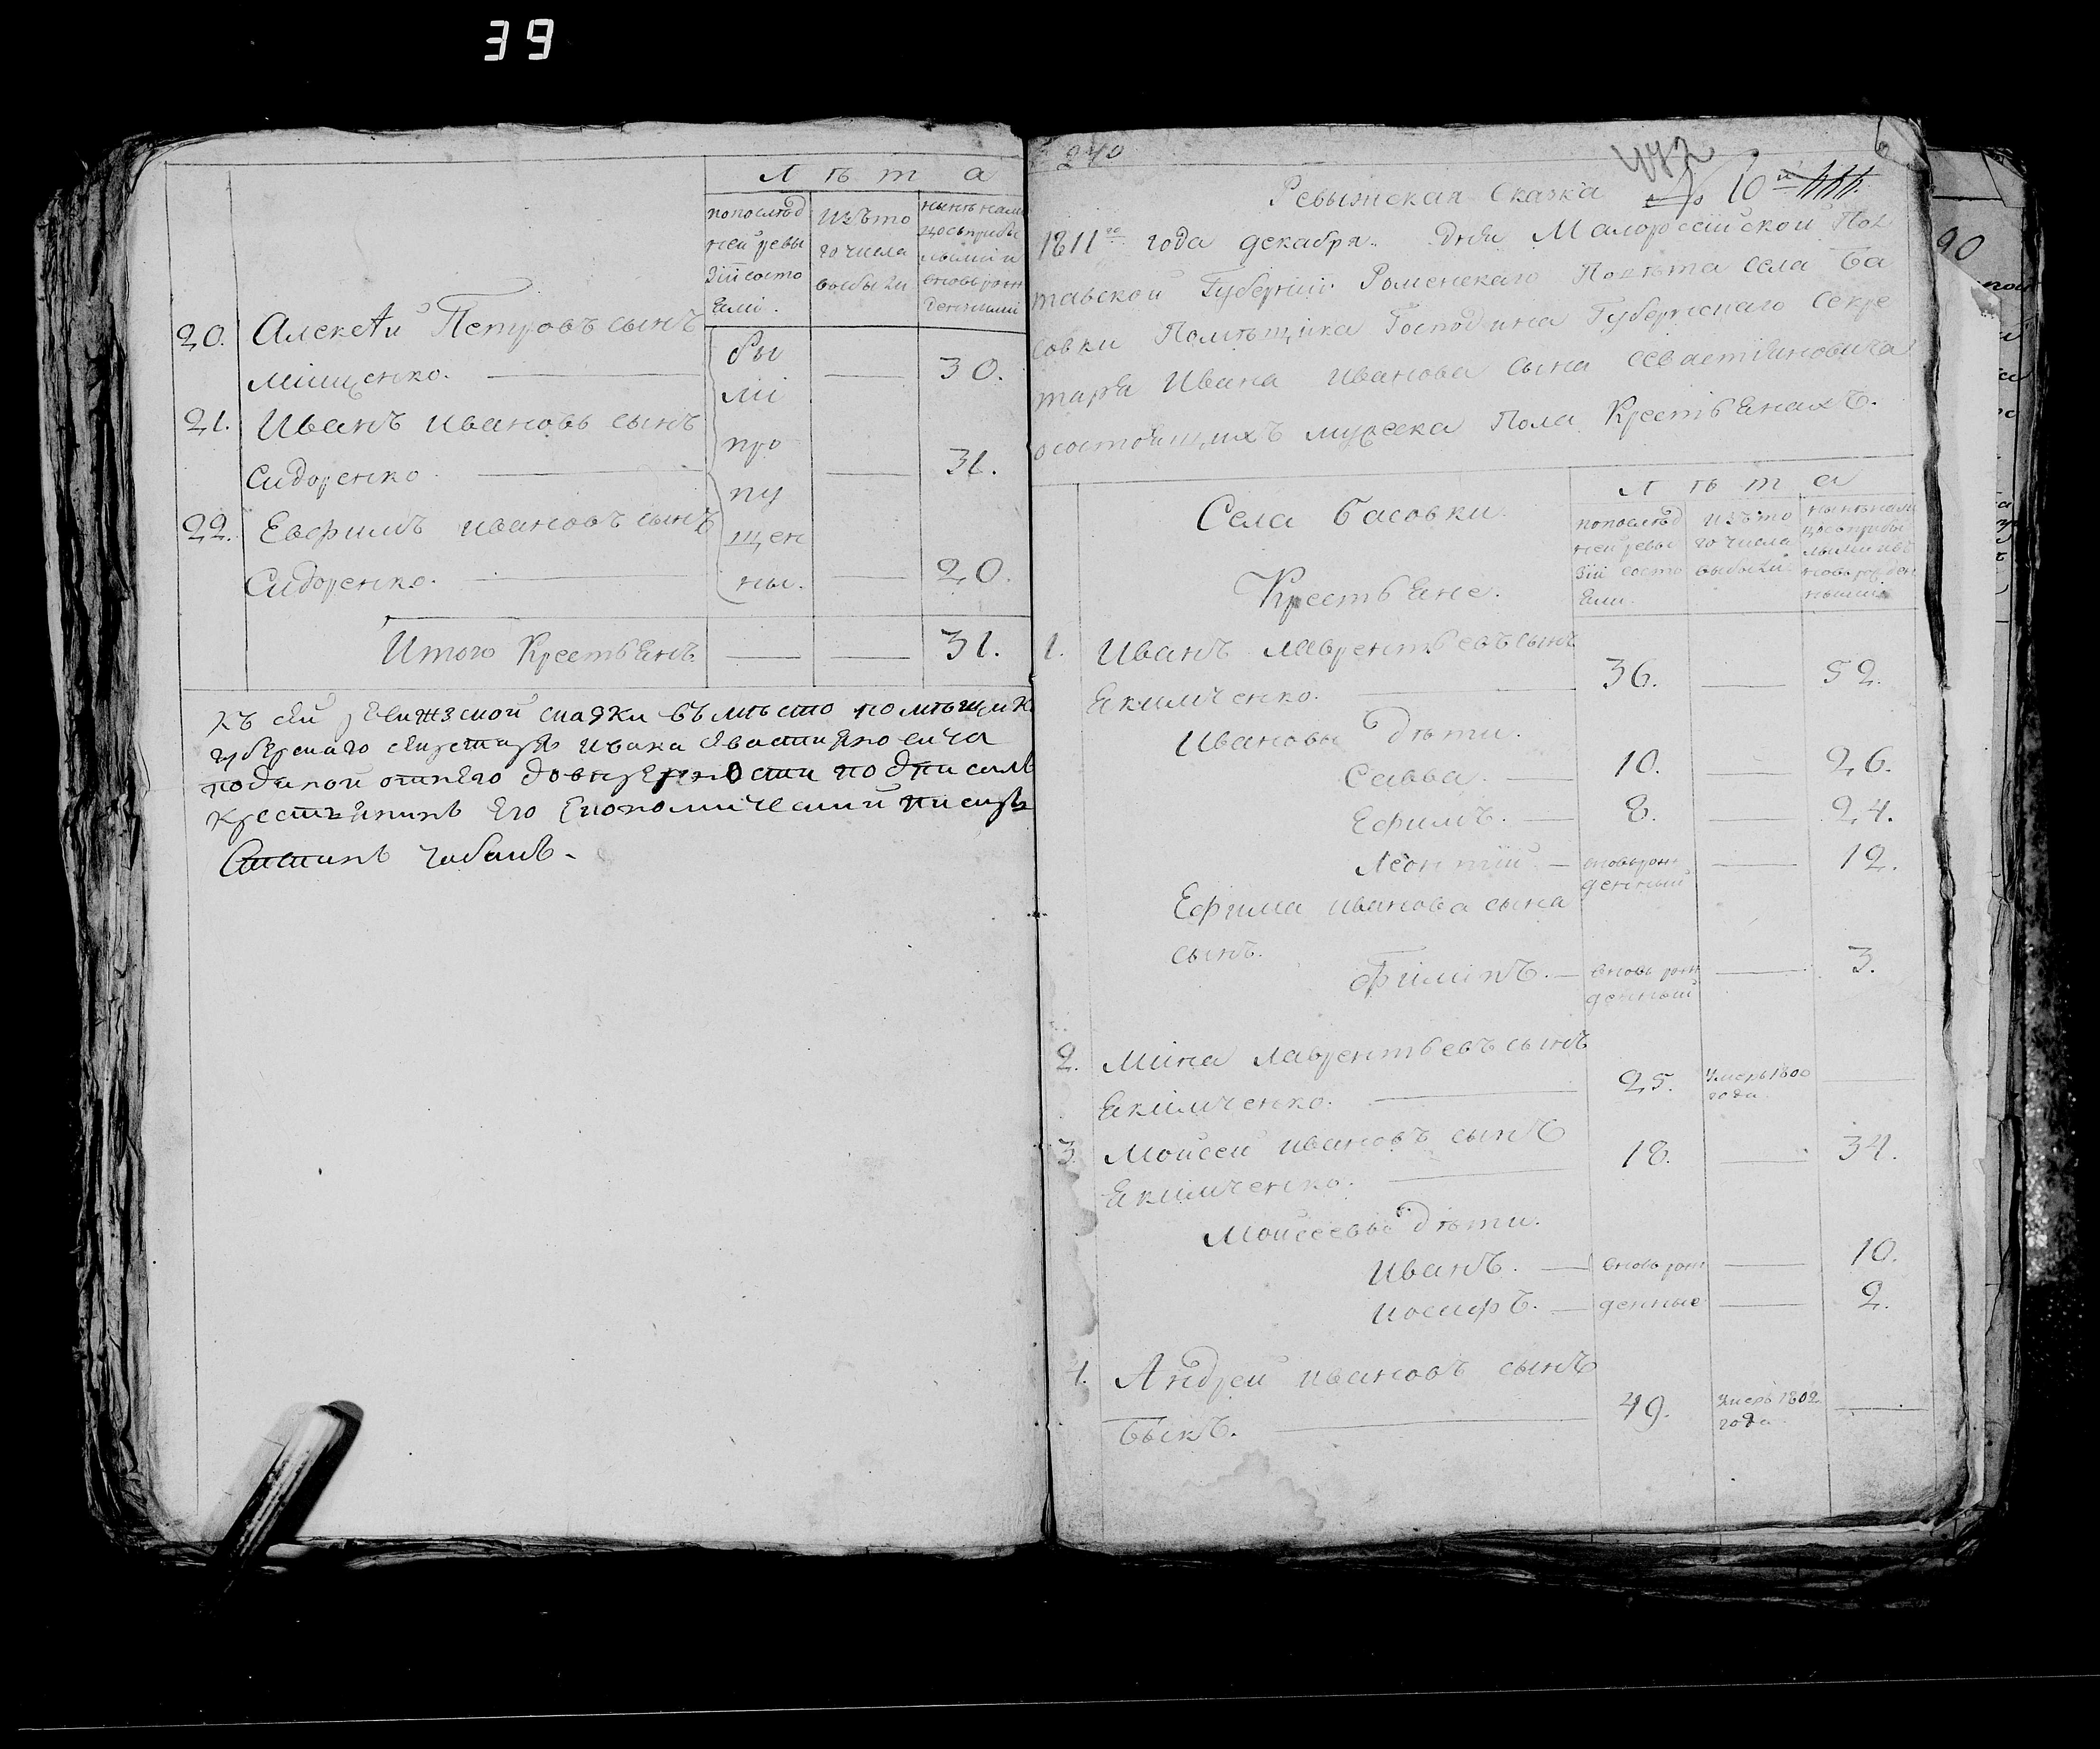 39
Л ѣ т а
попослѣд
ней ревы
зіи состо
яли.
изъ то
го числа
выбыли
нынѣ нали
цосъ прибы
лыми и
вновь рож
денными
20. Алексѣй Петровъ сынъ
Мищенко. 30.
21. Иванъ Ивановъ сынъ
Сидоренко 31.
22. Евфимъ Ивановъ сынъ
Сидоренко. 20.
бы
ли
про
пу
щен
ны.
Итого Крестьянъ 31.
Къ сей ревижзской сказки въмѣсто помѣщика
губерскаго секретаря Ивана Севастияновича
поданой отнего довѣрености подписалъ
крестьянинъ его економической писарь
240
442
6
Ревыжская Сказка № 10й
1811го года декабря дня Малоросійской Пол
тавской Губерніи Роменскаго Повѣта села Ба
совки Помѣщика Господина Губернскаго Секре
таря Ивана Иванова сына Севастіяновича
осостоящихъ мужеска Пола Крестьянахъ.
Села Басовки.
Крестьяне.
Л ѣ т а
попослѣд
ней ревы
зіи состо
яли.
изъ то
го числа
выбыли
нынѣ нали
цосъ прибы
лыми ив
новь рожден
ными
1. Иванъ Лаврентьевъ сынъ
Якимченко. 36. 52.
Ивановы дѣти.
Савва. 10. 26.
Ефимъ. 8. 24.
Леонтій вновь рож
денный 12.
Ефима Иванова сына
сынъ.
Филипъ. вновь рож
денный 3.
2. Мина Лаврентьевъ сынъ
Якимченко. 25. Умеръ 1800
года.
3. Мойсей Ивановъ сынъ
Якимченко. 18. 34.
Мойсеевы дѣти.
Иванъ. вновь рож 10.
Иосифъ. денные 2.
4. Андрей Ивановъ сынъ
Быкъ. 49. Умеръ 1802
года.
90